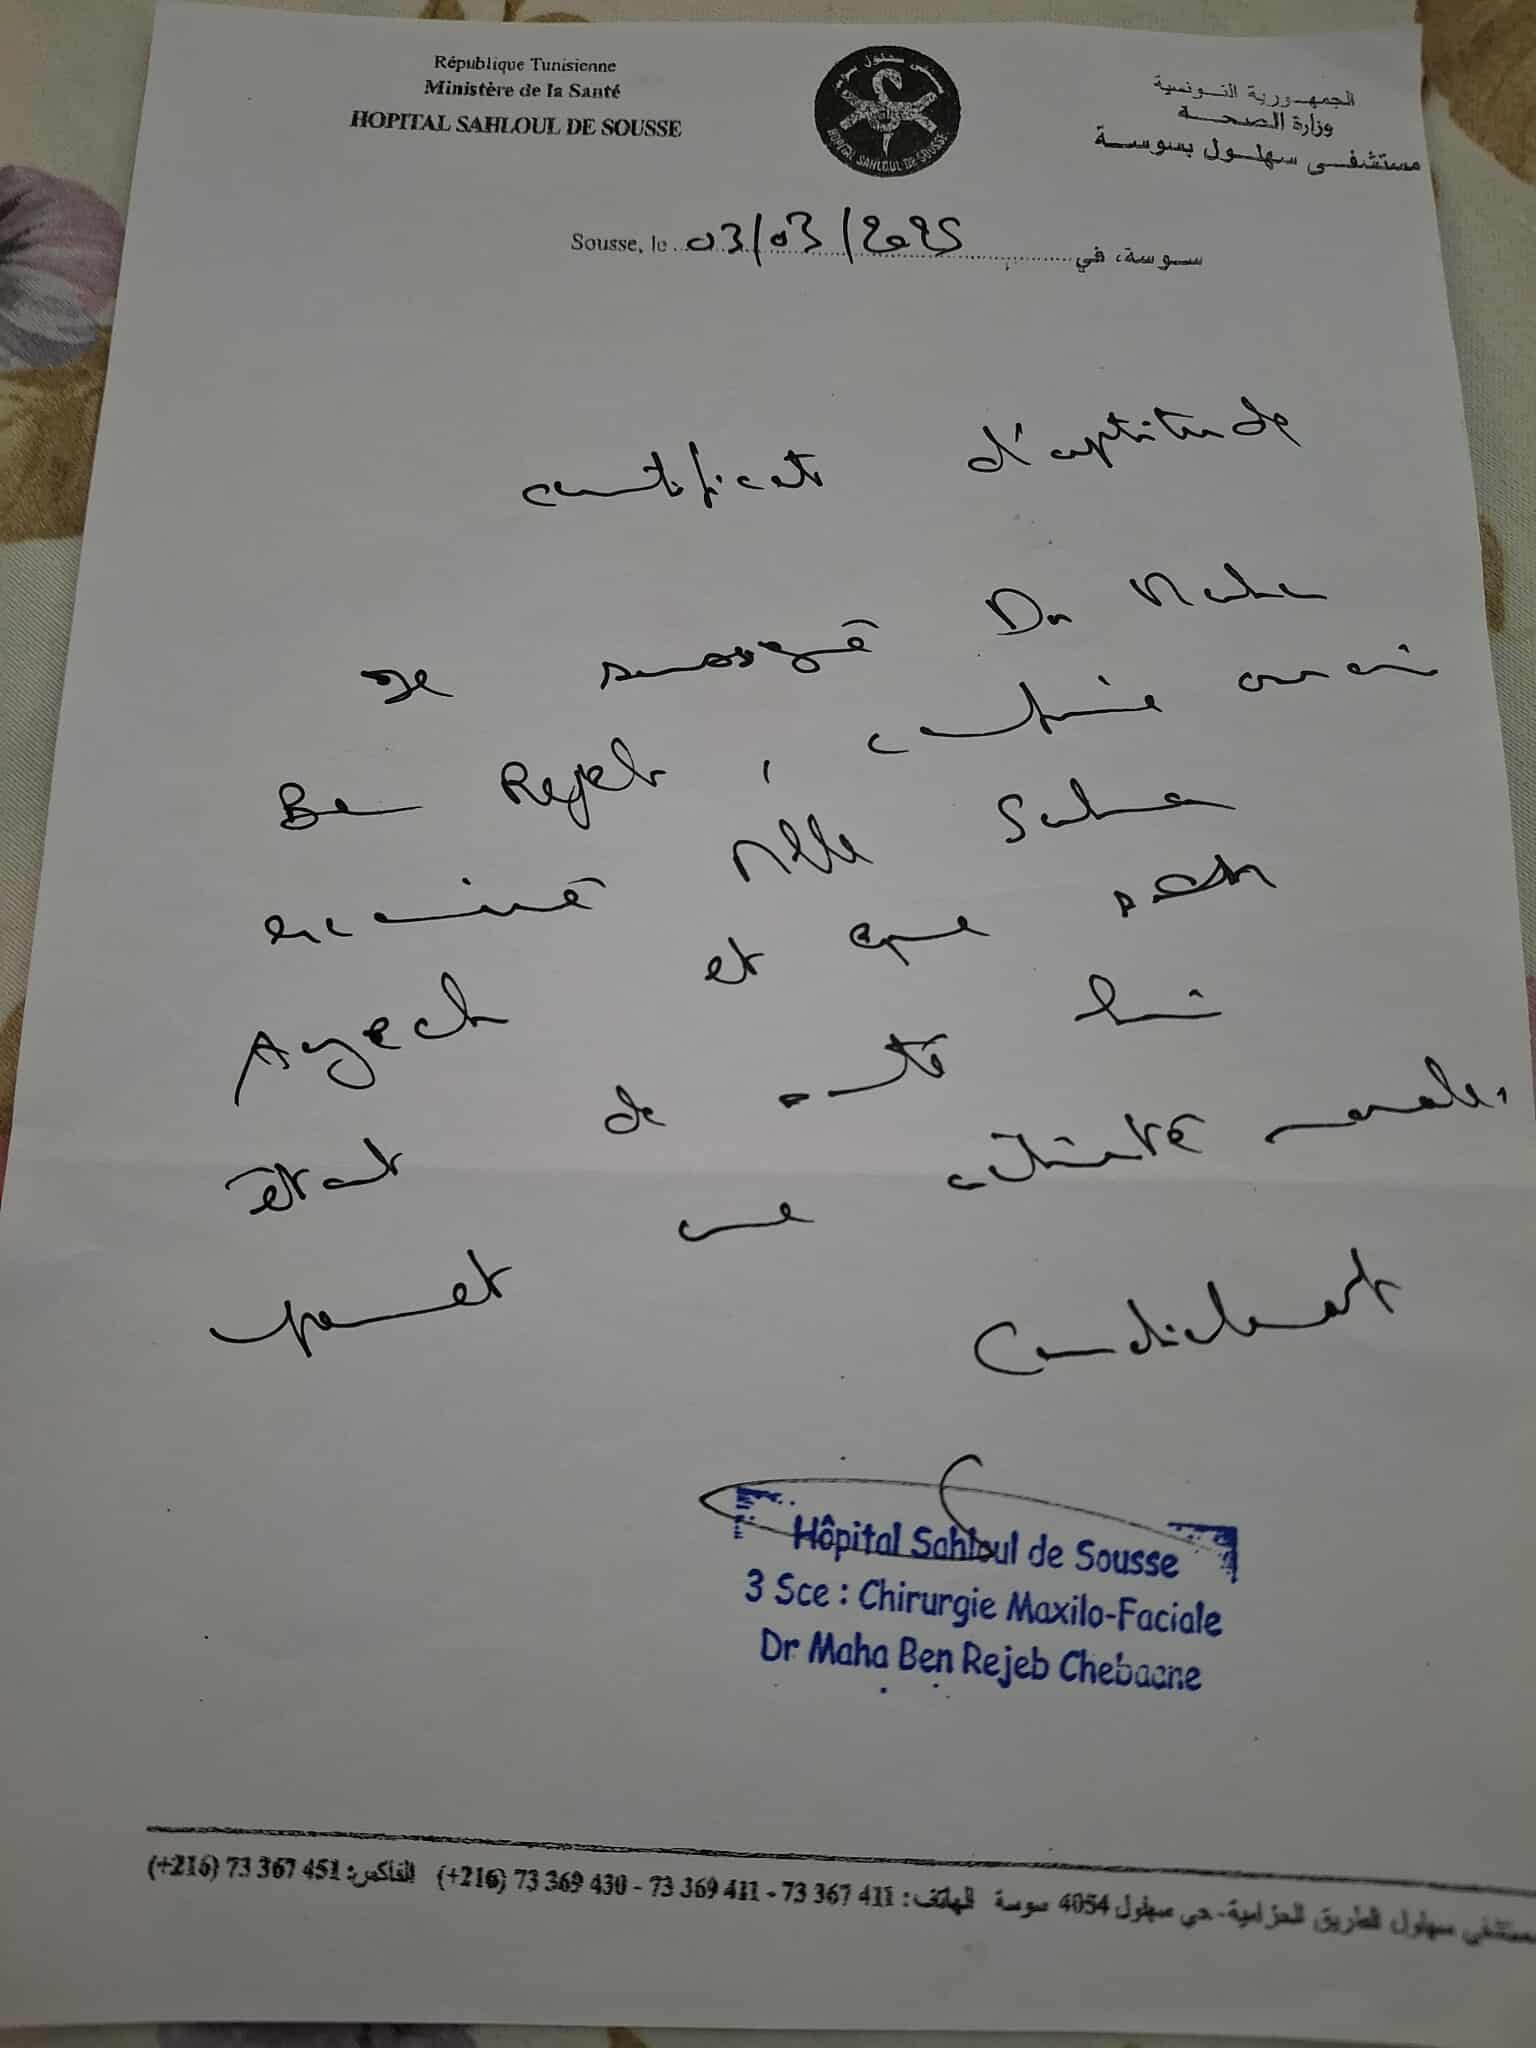 République Tunisienne
Ministère de la Santé
HOPITAL SAHLOUL DE SOUSSE
مستشفى سهلول بسوسة
HOPITAL SAHLOUL DE SOUSSE
الجمهورية التونسية
وزارة الصحة
مستشفى سهلول بسوسة
Sousse, le 03/03/2025 سوسة، في
certificat d'aptitude
Je soussigné Dr Maha
Ben Rejeb, certifie avoir
examiné Mlle Salma
Ayech et que son
état de santé lui
permet une activité normale.
Cordialement
Hôpital Sahloul de Sousse
3 Sce : Chirurgie Maxilo-Faciale
Dr Maha Ben Rejeb Chebaane
مستشفى سهلول الطريق الحزامية - حي سهلول 4054 سوسة الهاتف: 73 367 411 - 73 369 411 - 73 369 430 (+216) الفاكس: 73 367 451 (+216)